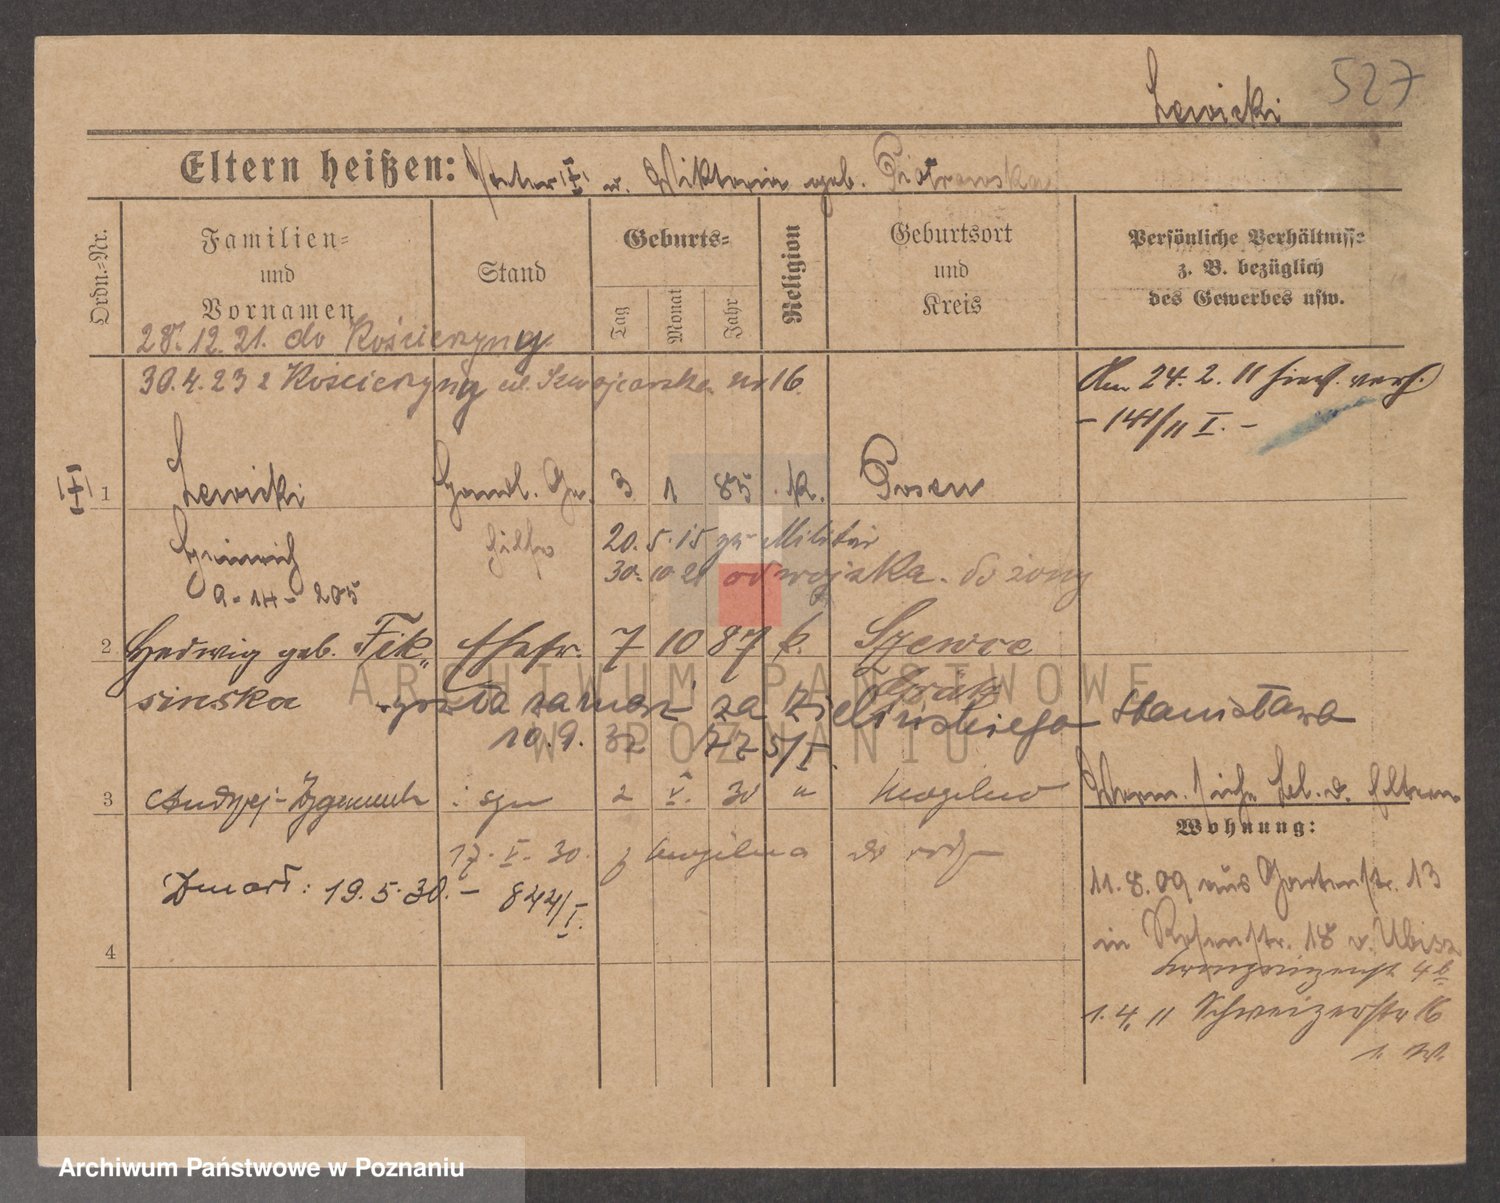 527
Lewicki
Eltern heißen: Vater u. Wiktoria geb. Piotrowska
Ordn.-Nr.
Familien- und Vornamen
Stand
Geburts-
Tag
Monat
Jahr
Religion
Geburtsort und Kreis
Persönliche Verhältnisse z. B. bezüglich des Gewerbes usw.
28.12.21. do Kościerzyny
30.4.23 z Kościerzyny ul. Szwajcarska nr 16
Am 24.2.11 hier verh.
- 141/11 I. -
1 Lewicki Handl. Ge. 3 1 85 k. Posen
Heinrich hilfe 20.5.15 zu Militär
30.10.21 od wojska. do żony
2 Hedwig geb. Fik- Ehefr. 7 10 87 k. Szewce
sinska wyszła zamąż za Zielińskiego Stanisława
Grätz
10.9.32
3 Andrzej-Zygmunt syn 2 V. 30 " Mogilno
Wohnung:
17.V.30. z Mogilna do
Zmarł: 19.5.30. - 844/I.
11.8.09 aus Gartenstr. 13
in Rosenstr. 18 v. Ubisz
Kronprinzenst 4b
1.4.11 Schweizerstr 16
4
ARCHIWUM PAŃSTWOWE
W POZNANIU
Archiwum Państwowe w Poznaniu